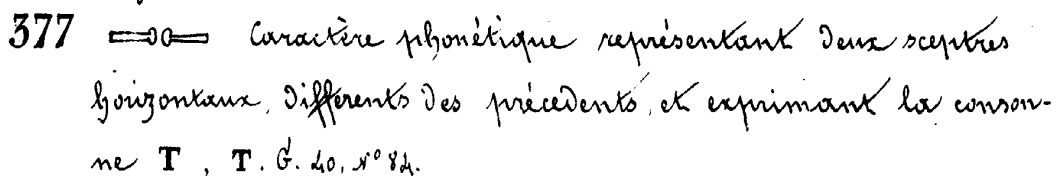 377 Caractère phonétique représentant deux sceptres
horizontaux, différents des précedents, et exprimant la conson-
ne T, T. G. 40, N° 84.